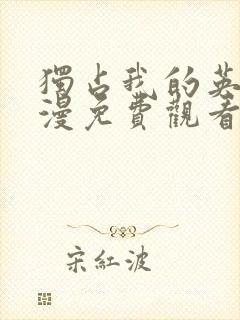 獨占我的英
漫免費觀看
宋紅波